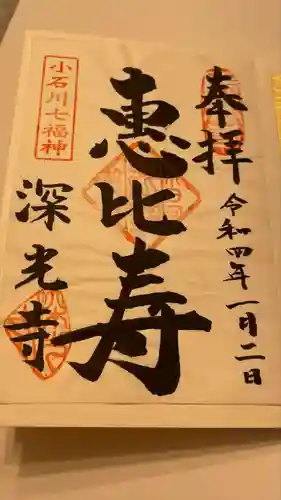 奉拝
令和四年一月二日
恵比寿
小石川七福神
深光寺